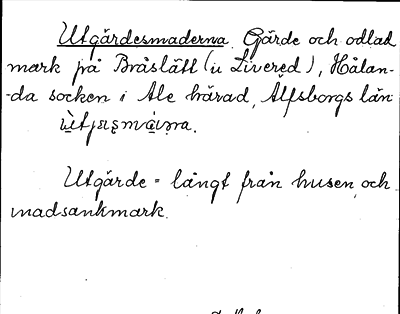 Utgärdesmaderna. Gärde och odlad
mark på Bråslätt (u Livered), Hålan-
-da socken i Ale härad, Älfsborgs län

Utgärde = långt från husen och
madsankmark.